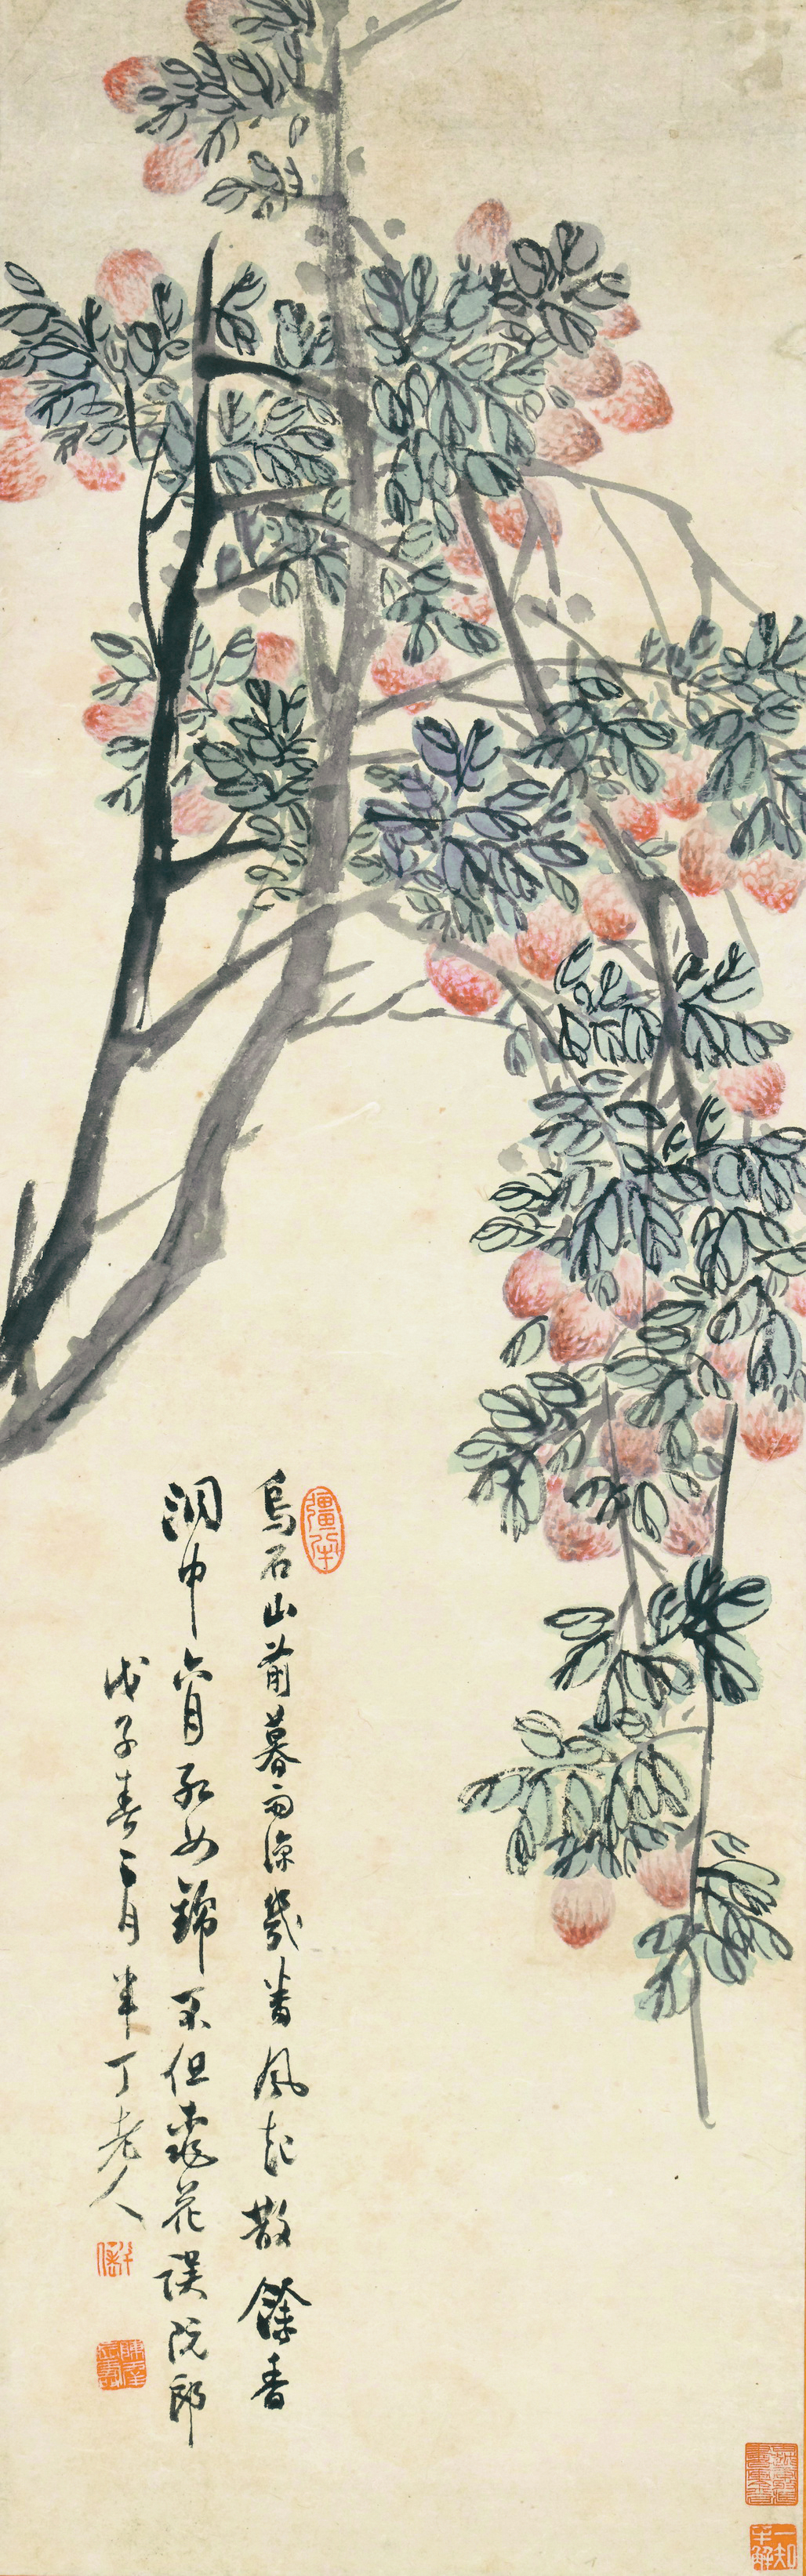 烏石山前暮雨涼幾番風起散餘香
洞中六月紅如錦不但桃花誤阮郎
戊子春二月半丁老人
一知半解